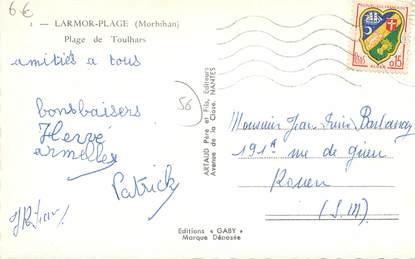 6€
1 - LARMOR-PLAGE (Morbihan)
Plage de Toulhars
amitiés a tous
bonsbaisers
Hervé
armelle
Patrick
56
ARTAUD Père et Fils, Editeurs
Avenue de la Close, NANTES
Editions « GABY »
Marque Déposée
REPUBLIQUE FRANÇAISE
POSTES
ALGER
0,15
Monsieur Jean
191A rue de
Rouen
(S.M)